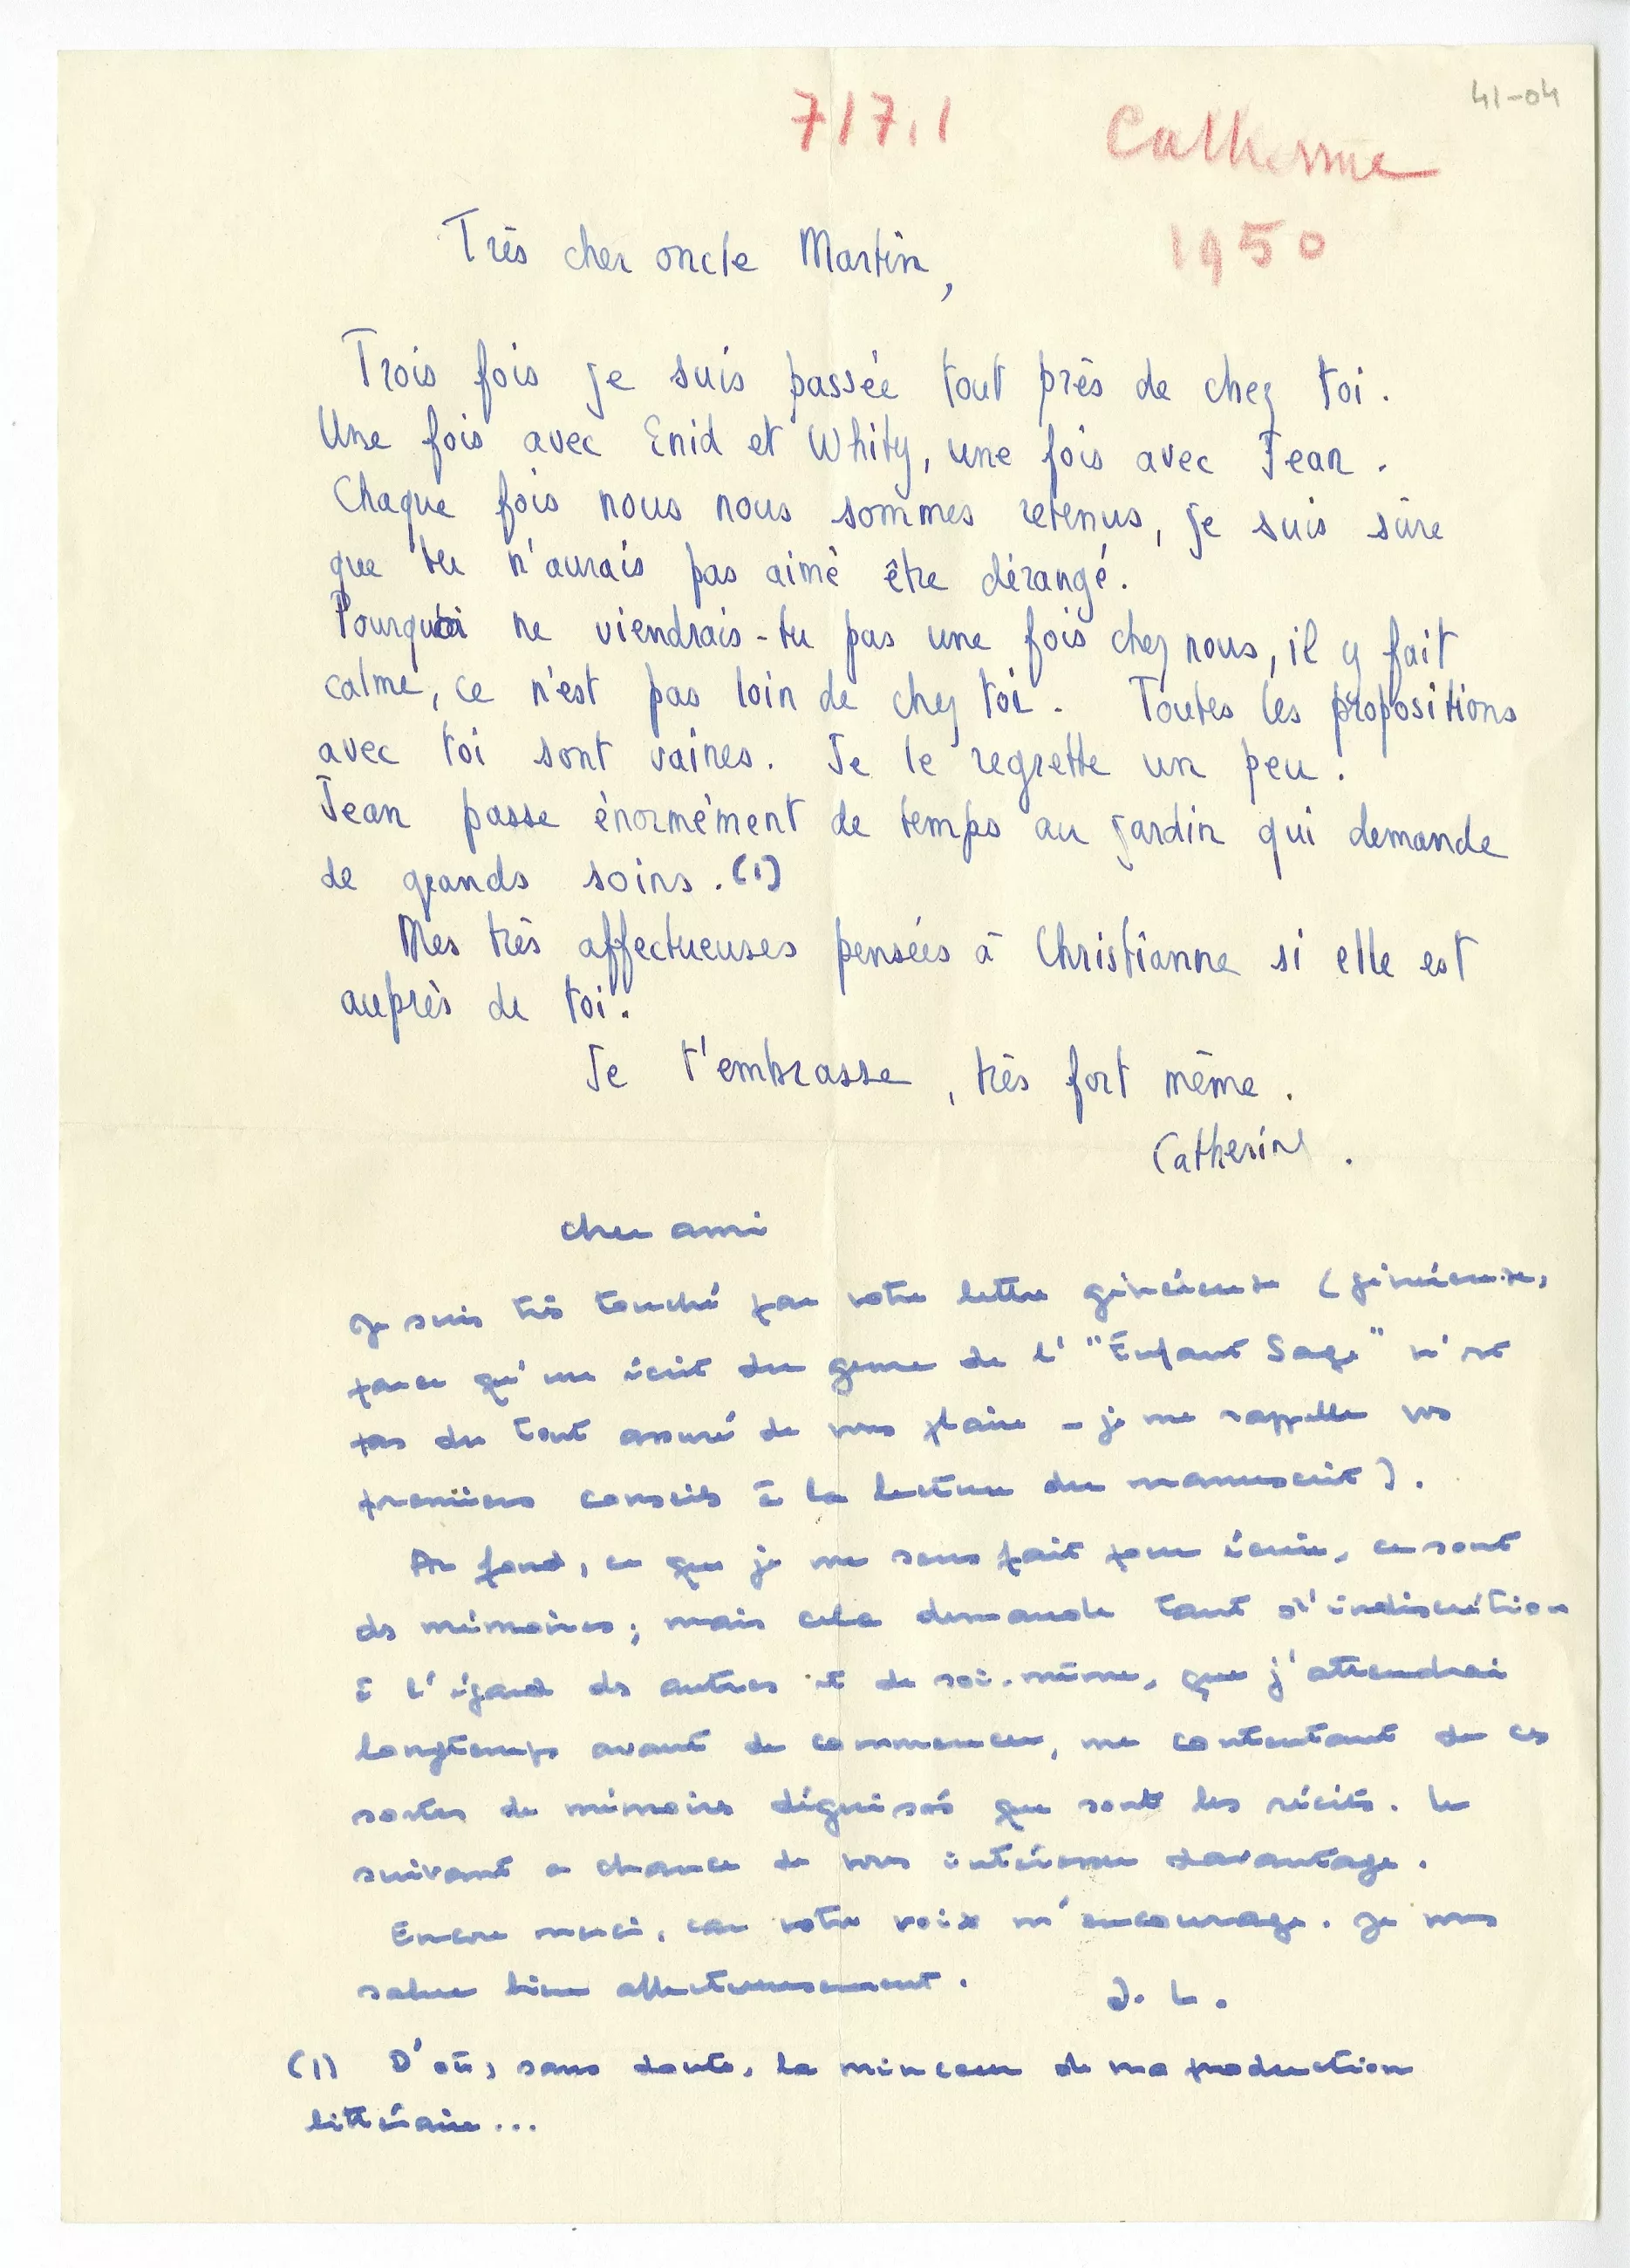 41-04
717.1 Catherine
1950
Très cher oncle Martin,
Trois fois je suis passée tout près de chez toi.
Une fois avec Enid et Whity, une fois avec Jean.
Chaque fois nous nous sommes retenus, je suis sûre
que tu n'aurais pas aimé être dérangé.
Pourquoi ne viendrais-tu pas une fois chez nous, il y fait
calme, ce n'est pas loin de chez toi. Toutes les propositions
avec toi sont vaines. Je le regrette un peu.
Jean passe énormément de temps au jardin qui demande
de grands soins. (1)
Mes très affectueuses pensées à Christianne si elle est
auprès de toi.
Je t'embrasse, très fort même.
Catherine.
cher ami
Je suis très touché par votre lettre généreuse (généreuse,
parce qu'un écrit du genre de l' "Enfant Sage" n'est
pas du tout assuré de vous plaire - je me rappelle vos
premiers conseils à la lecture du manuscrit).
Au fond, ce que je me sens fait pour écrire, ce sont
des mémoires; mais cela demande tant d'indiscrétion
à l'égard des autres et de soi-même, que j'attendrai
longtemps avant de commencer, me contentant de ces
sortes de mémoires déguisés que sont les récits. Le
suivant a chance de vous intéresser davantage.
Encore merci, car votre voix m'encourage. Je vous
salue bien affectueusement. J. L.
(1) D'où, sans doute, la minceur de ma production
littéraire...